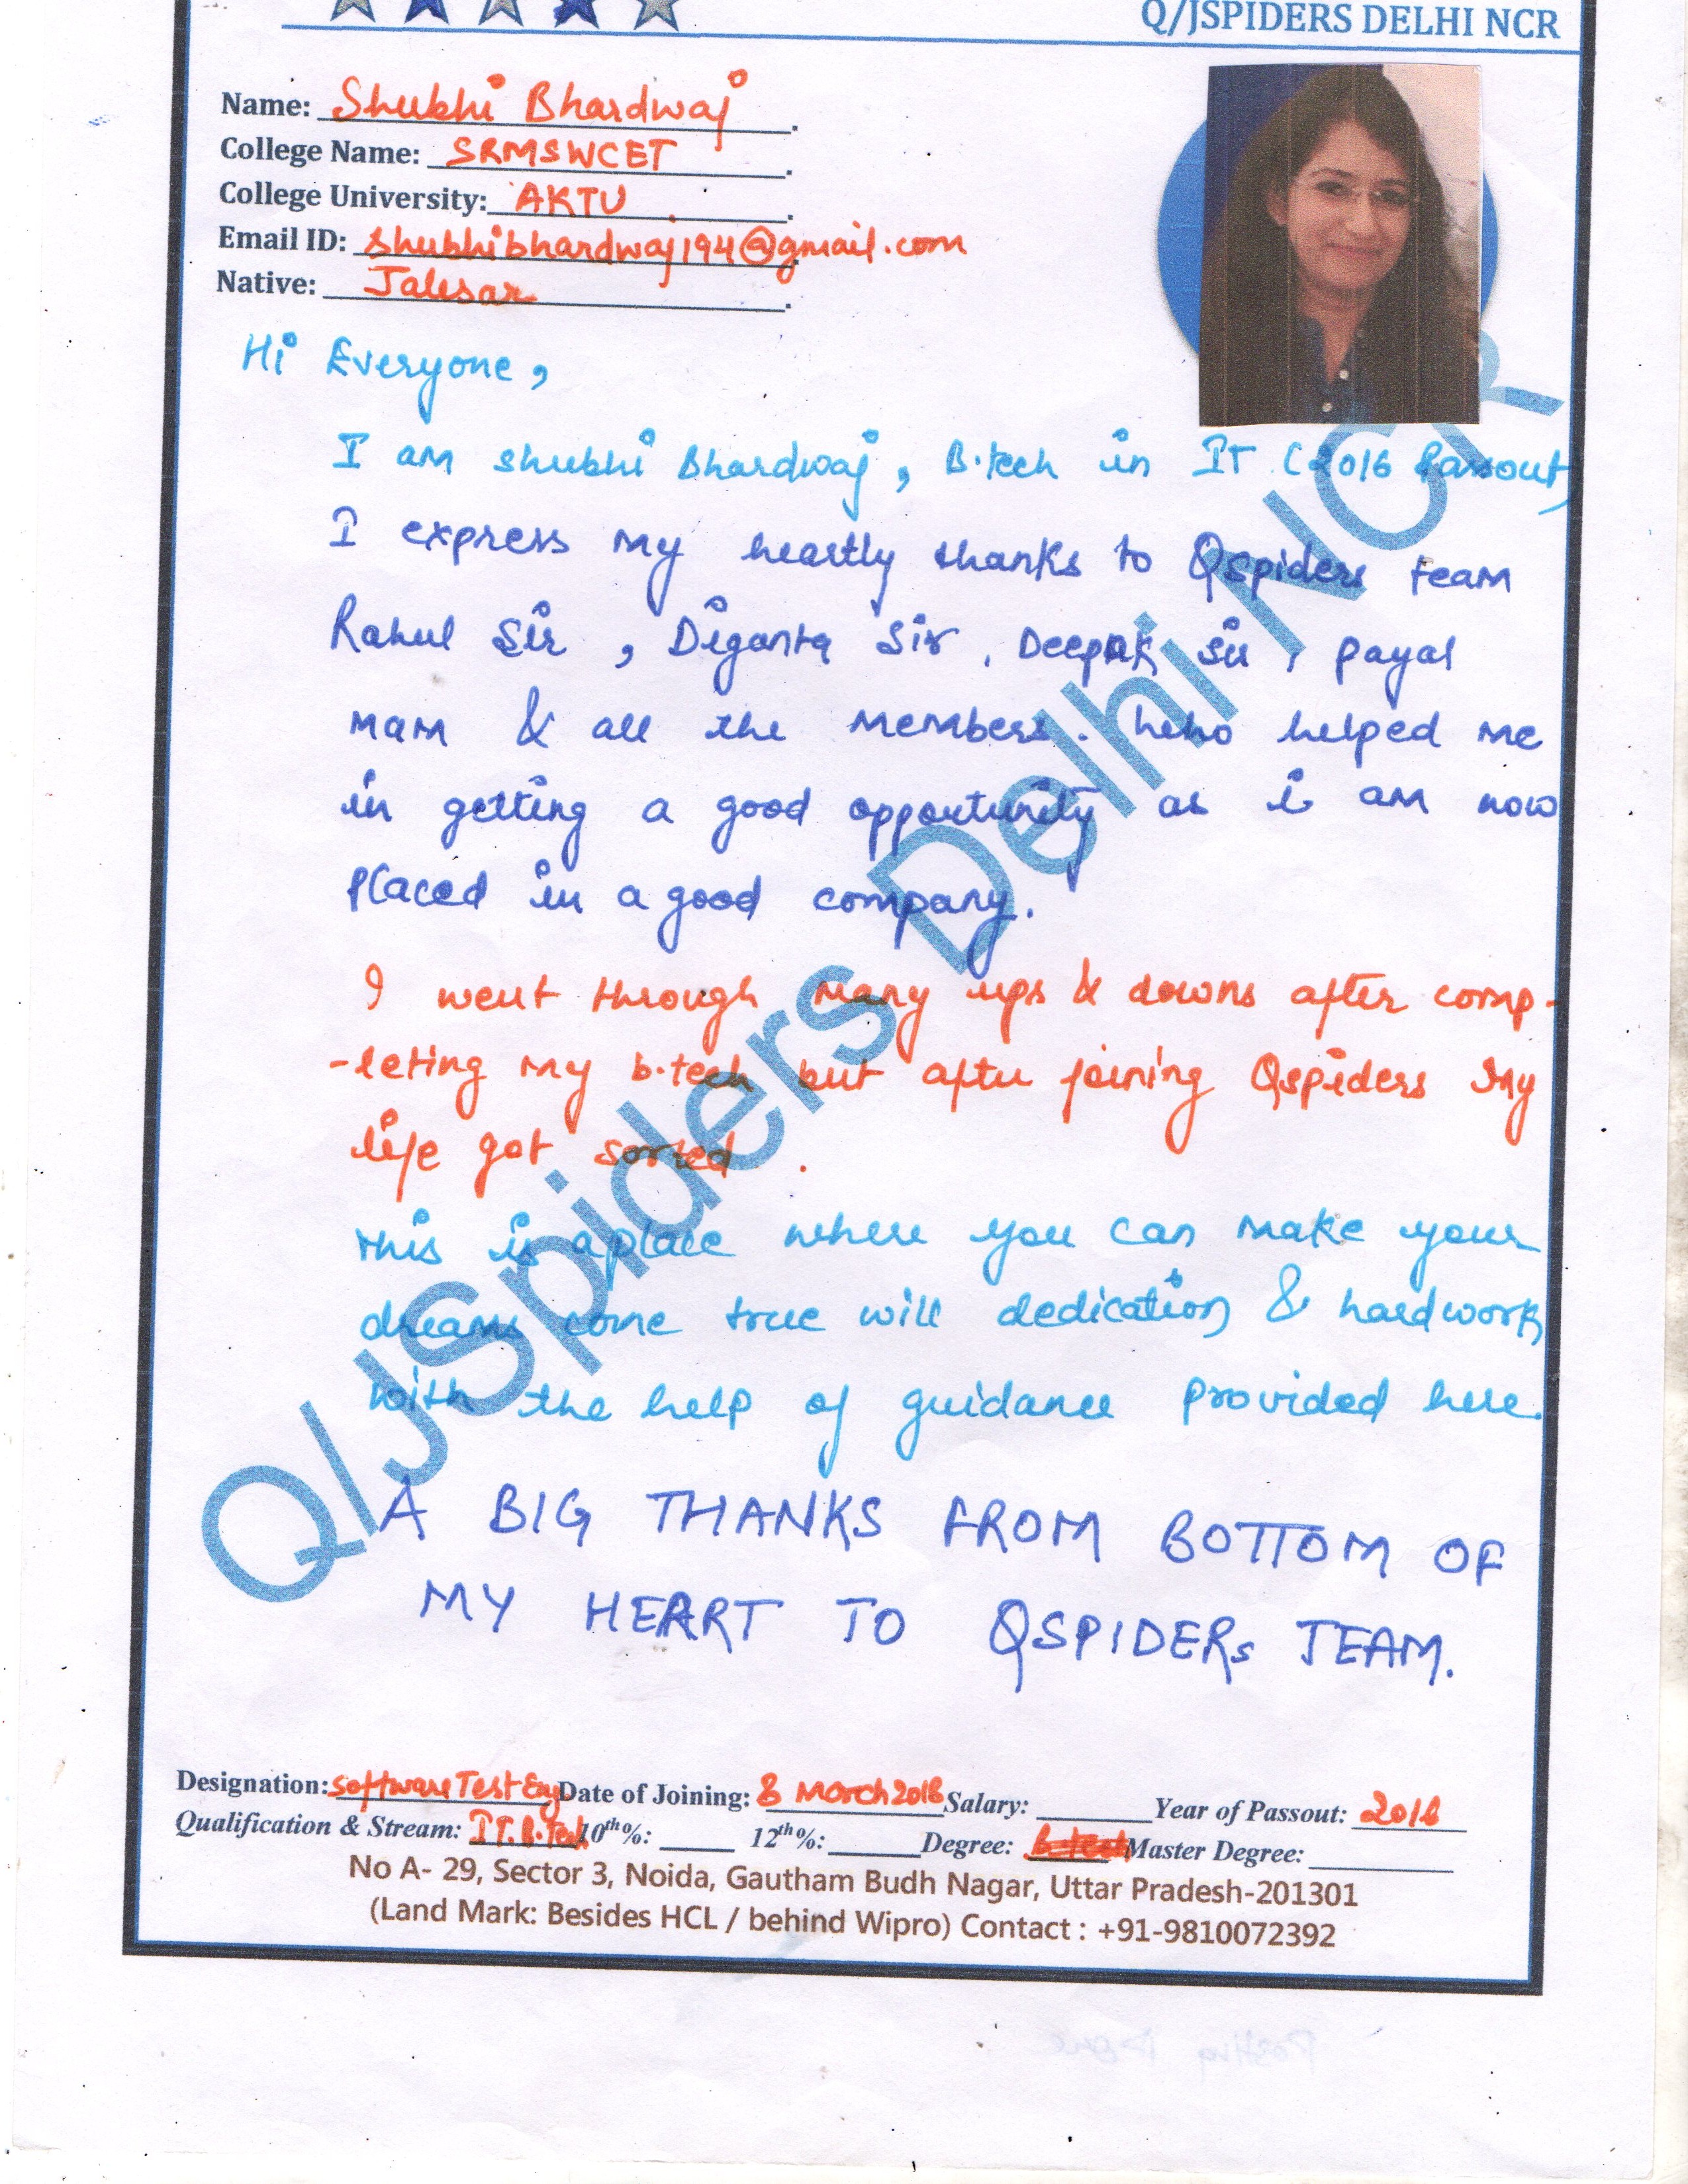 Q/JSPIDERS DELHI NCR
Name: Shubhi Bhardwaj
College Name: SRMSWCET
College University: AKTU
Email ID: shubhibhardwaj194@gmail.com
Native: Jalesar
Hi Everyone,
I am shubhi Bhardwaj, B.tech in IT (2016 Passout)
I express my heartly thanks to Qspiders team
Rahul Sir, Diganta Sir, Deepak sir, payal
mam & all the members. who helped me
in getting a good opportunity as i am now
placed in a good company.
I went through many ups & downs after comp-
-leting my b.tech but after joining Qspiders my
life got sorted.
this is a place where you can make your
dreams come true will dedication & hardwork
with the help of guidance provided here.
A BIG THANKS FROM BOTTOM OF
MY HEART TO QSPIDERs TEAM.
Q/JSpiders Delhi NCR
Designation: Software Test Eng Date of Joining: 8 March 2018 Salary: Year of Passout: 2016
Qualification & Stream: IT. B.Tech 10th%: 12th%: Degree: Master Degree:
No A- 29, Sector 3, Noida, Gautham Budh Nagar, Uttar Pradesh-201301
(Land Mark: Besides HCL / behind Wipro) Contact : +91-9810072392